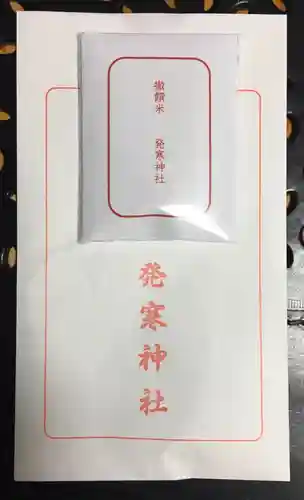 撤饌米　発寒神社
発寒神社